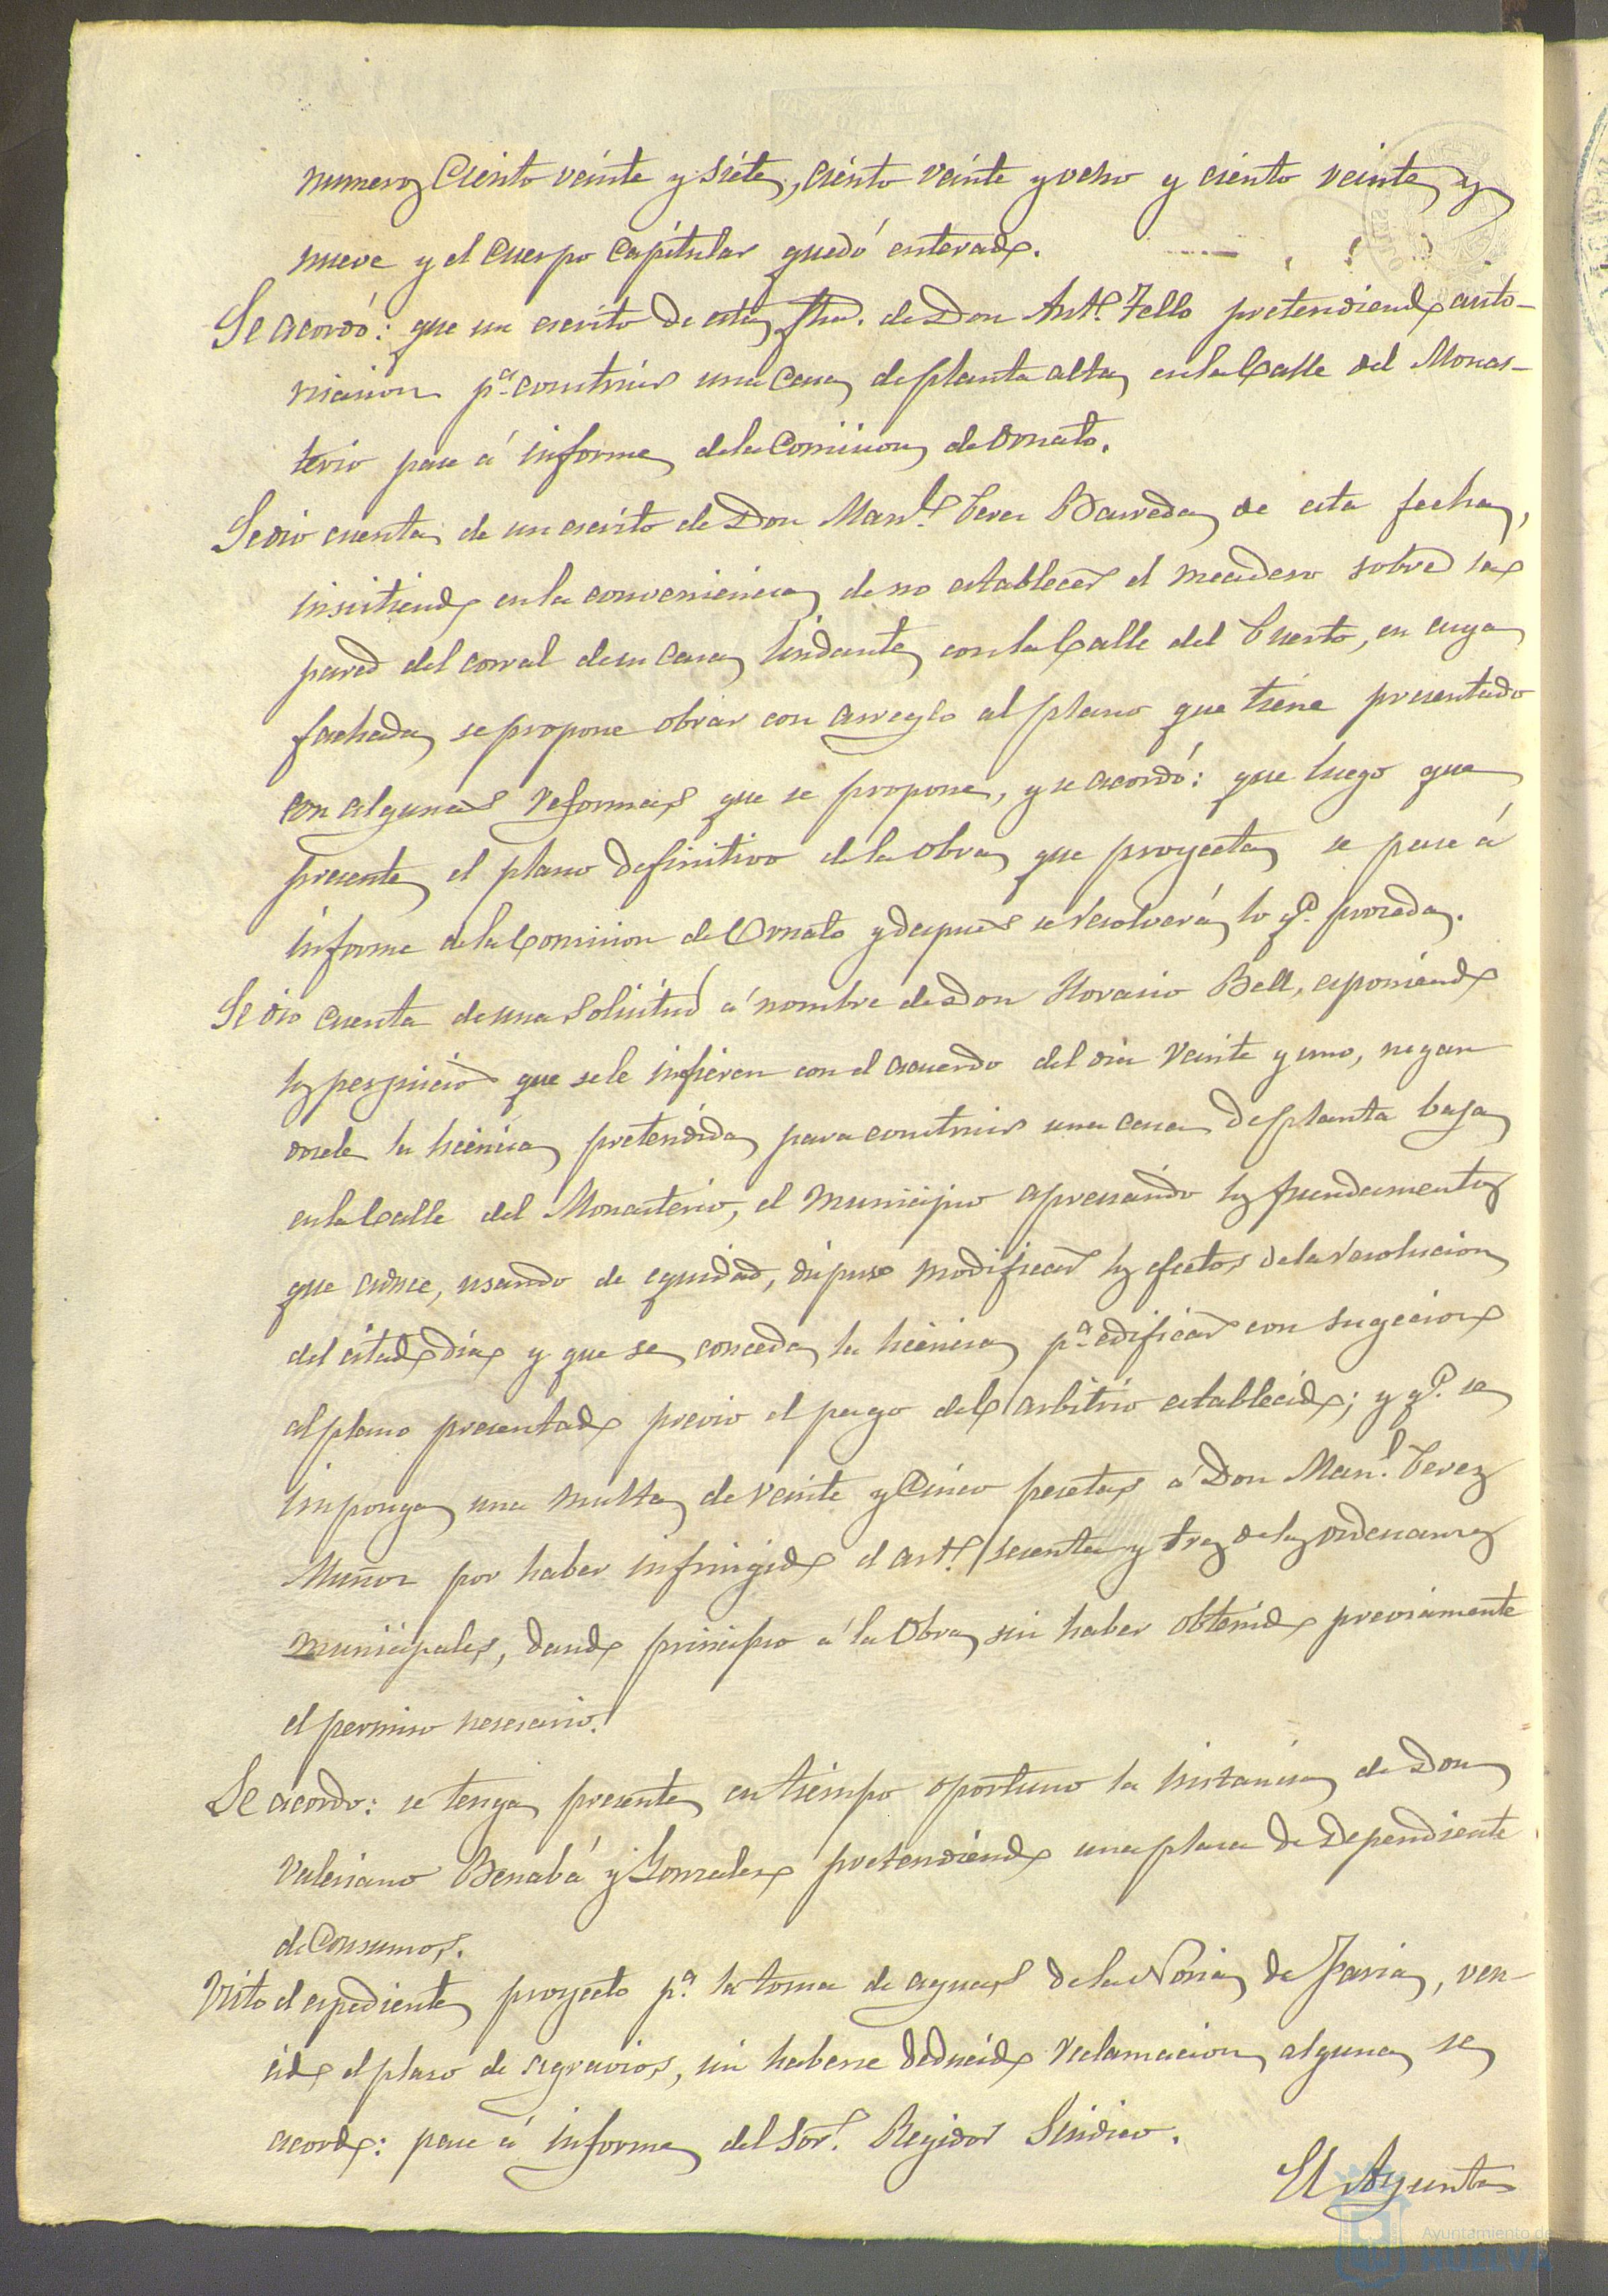 numeros Ciento veinte y siete, ciento veinte y ocho y ciento veinte y
nueve y el Cuerpo Capitular quedó enterado.
Se acordó: que un escrito de esta fha. de Don Antº. Tello pretendiendo auto-
risacion pª. construir una Casa de planta alta en la Calle del Monas-
terio pase á informe de la Comision de Ornato.
Se dió cuenta de un escrito de Don Manl. Perez Barreda de esta fecha,
insistiendo en la conveniencia de no establecer el meadero sobre la
pared del corral de su Casa lindante con la Calle del Puerto, en cuya
fachada se propone obrar con arreglo al plano que tiene presentado
con algunas reformas que se propone, y se acordó: que luego que
presente el plano definitivo de la obra que proyecta se pase á
informe de la Comision de Ornato y despues se resolverá lo qe. proceda.
Se dió cuenta de una solicitud á nombre de Don Horacio Bell, esponiendo
los perjuicios que se le infieren con el acuerdo del dia veinte y uno, negan
dosele la licencia pretendida para construir una casa de planta baja
en la Calle del Monasterio, el Municipio apreciando los fundamentos
que aduce, usando de equidad, dispuso modificar los efectos de la resolucion
del citado dia y que se conceda la licencia pª. edificar con sugecion
al plano presentado previo el pago del arbitrio establecido; y qe. se
imponga una multa de veinte y Cinco pesetas á Don Manl. Perez
Muñoz por haber infringido el artº. sesenta y tres de las ordenanzas
municipales, dando principio á la Obra sin haber obtenido previamente
el permiso nesesario.
Se acordo: se tenga presente en tiempo oportuno la instancia de Don
Valeriano Benabá y Gonzales pretendiendo una plasa de Dependiente
de Consumos.
Visto el espediente proyecto pª. la toma de aguas de la Noria de Faria, ven-
cido el plaso de agravios, sin haberse deducido reclamacion alguna se
acordo: pase á informe del Sor. Regidor Sindico.
El Ayunta
Ayuntamiento de
HUELVA